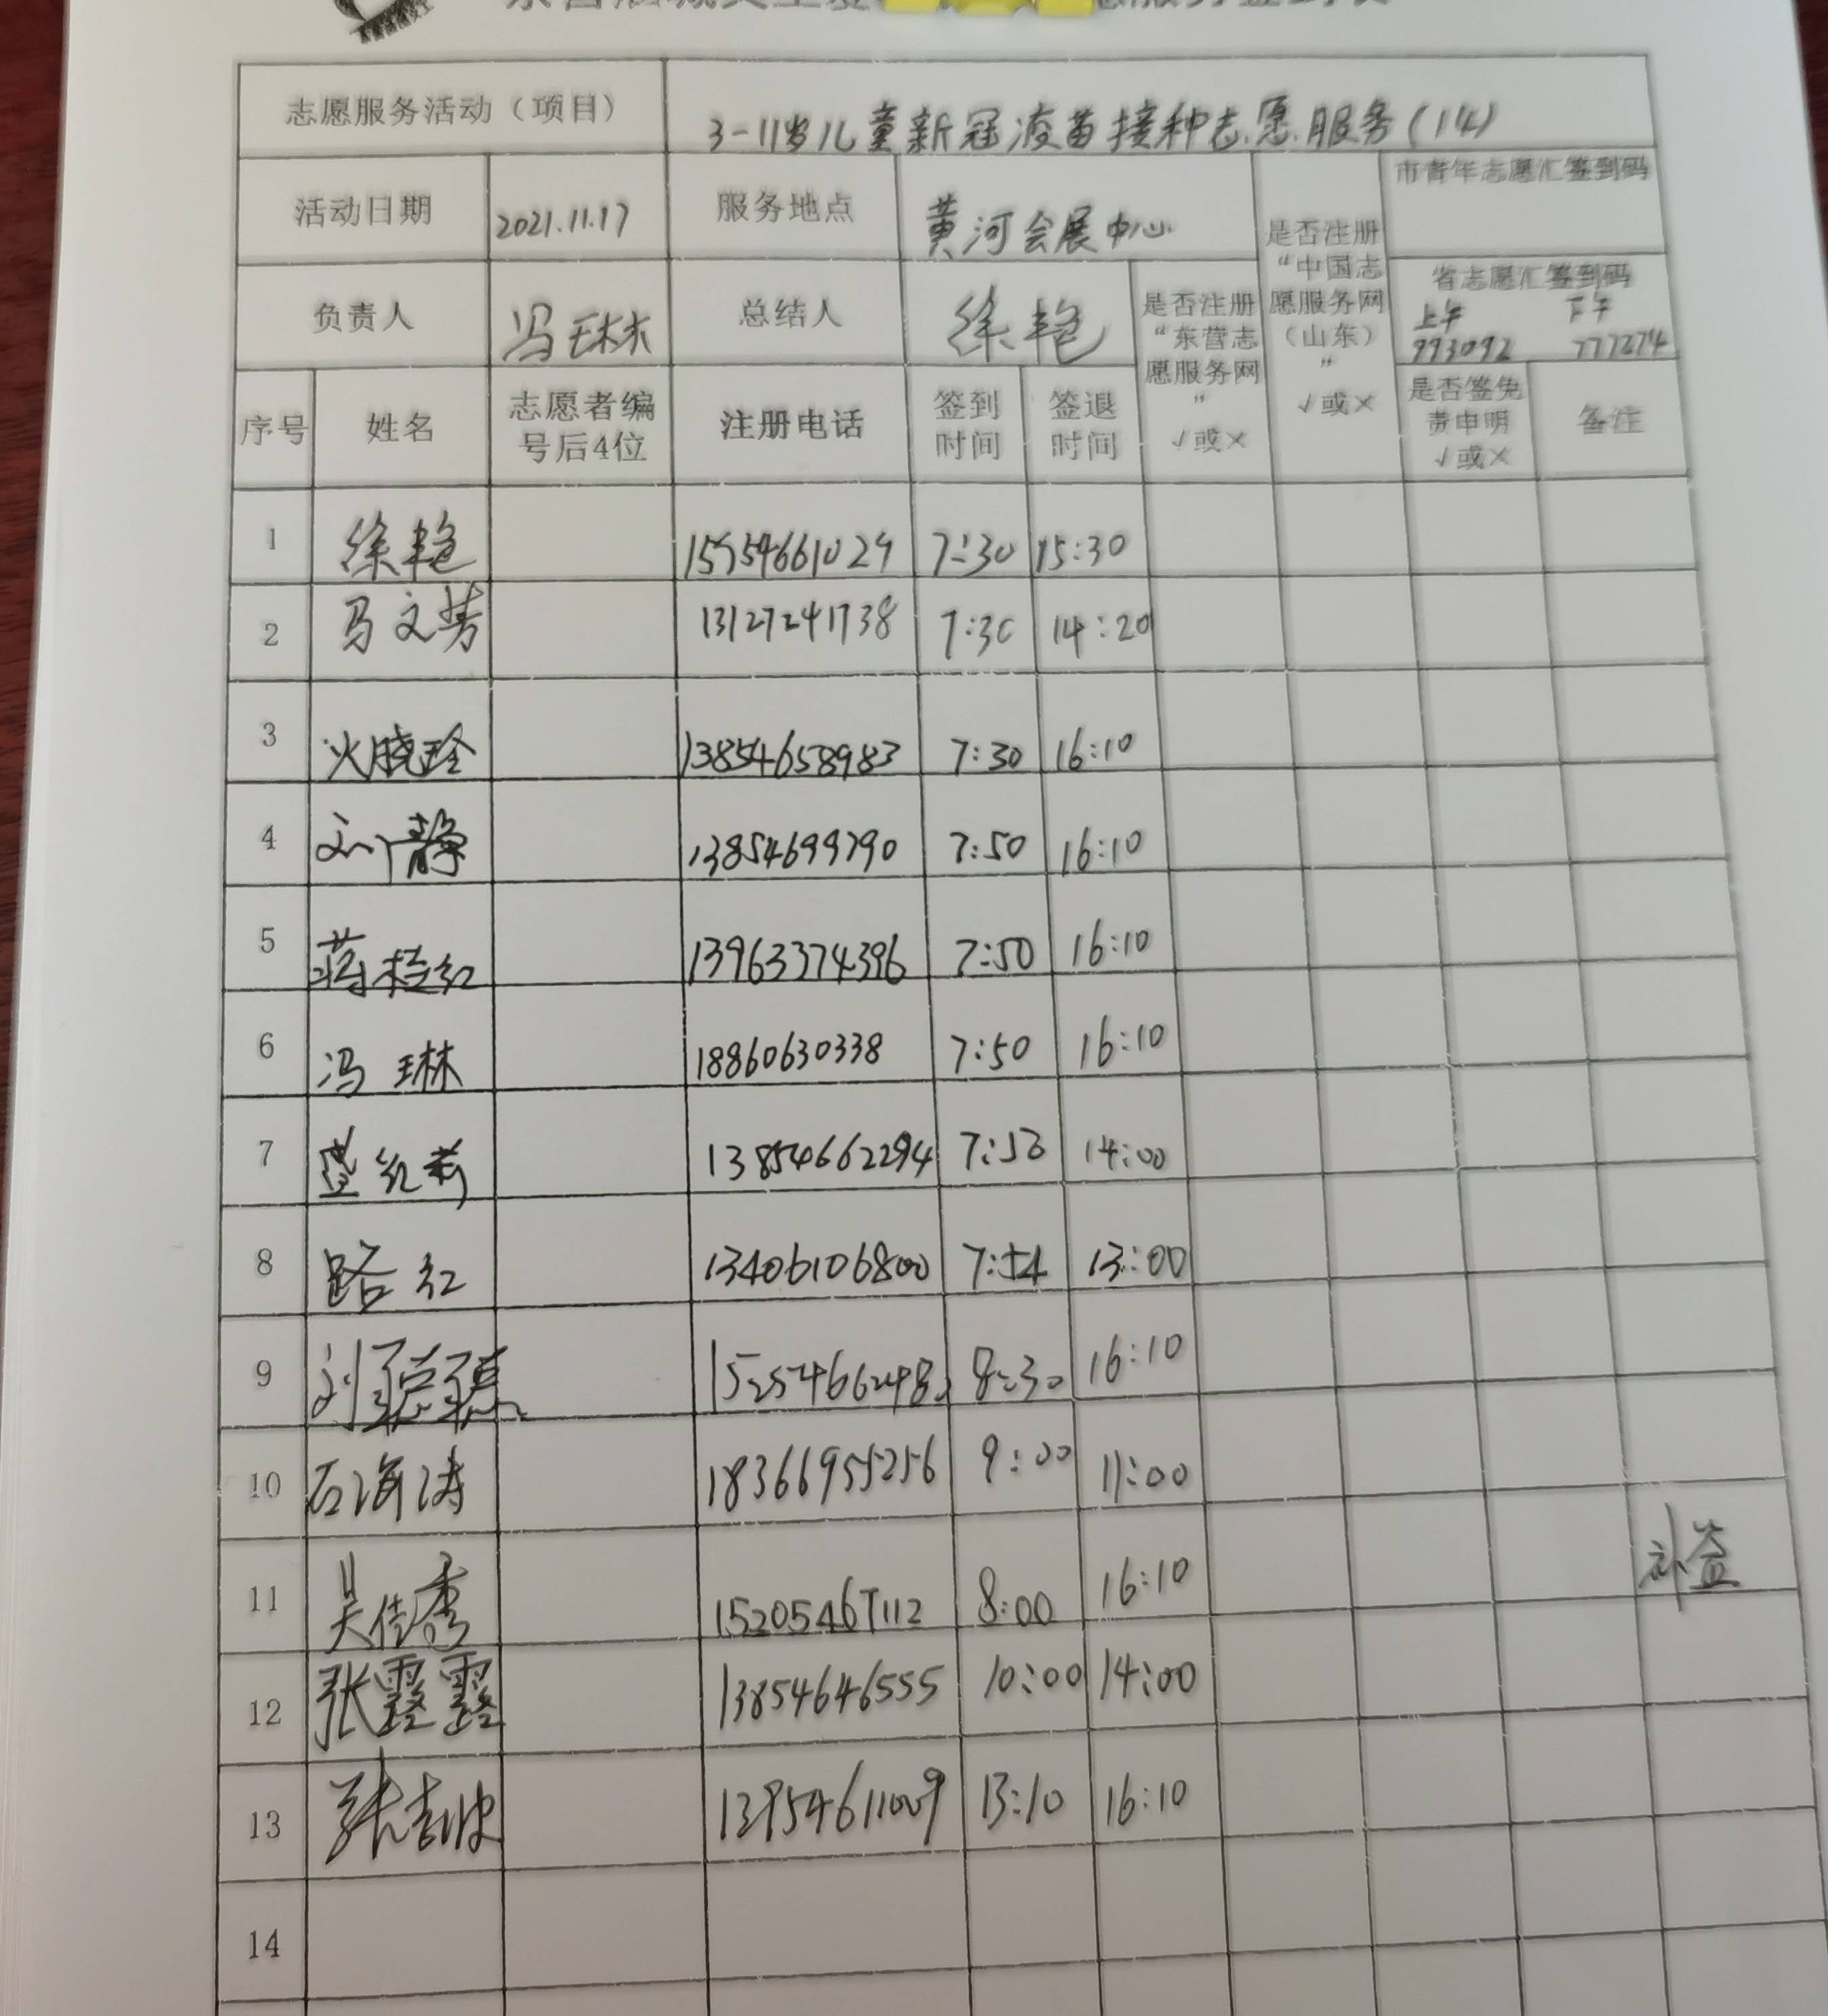 志愿服务活动（项目） 3-11岁儿童新冠疫苗接种志愿服务(14)
活动日期 2021.11.17 服务地点 黄河会展中心
市青年志愿汇签到码
负责人 冯琳 总结人 徐艳
是否注册“东营志愿服务网” √或×
是否注册“中国志愿服务网（山东）” √或×
省志愿汇签到码
上午 下午
993092 777274
序号 姓名 志愿者编号后4位 注册电话 签到时间 签退时间 是否签免责申明 √或× 备注
1 徐艳 15954661029 7:30 15:30
2 马文芳 13127241738 7:30 14:20
3 火晓玲 13854658983 7:30 16:10
4 刘静 13854699790 7:50 16:10
5 蒋桂红 13963374396 7:50 16:10
6 冯琳 18860630338 7:50 16:10
7 13854662294 7:53 14:00
8 路红 13406106800 7:54 13:00
9 刘聪聪 8:30 16:10
10 石海涛 18366955256 9:00 11:00
11 吴佳秀 15205467112 8:00 16:10
12 张露露 13854646555 10:00 14:00
13 13954611009 13:10 16:10
14